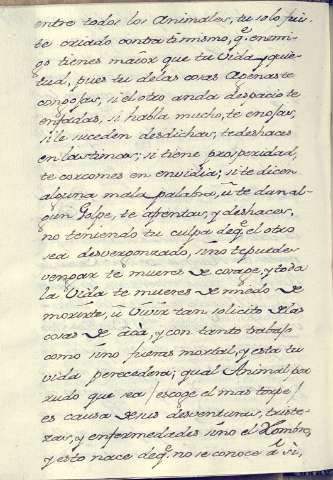 entre todos los Animales, tu solo fuis-
te criado contra ti mismo, q.e enemi-
go tienes maior que tu Vida, y quie-
tud, pues tu de las cosas Ajenas te
congojas, si el otro anda despacio te
enfadas, si habla mucho, te enojas,
si le suceden desdichas, te deshaces
en lastimas; si tiene prosperidad,
te corcomes en envidia; si te dicen
alguna mala palabra, ù te dan al-
gun Golpe, te afrentas, y deshaces,
no teniendo tu culpa de q.e el otro
sea desvergonzado, sino te puedes
vengar te mueres de corage, y toda
la Vida te mueres de miedo de
morirte, ù Vivir tan solicito de las
cosas de acà, y con tanto trabajo
como sino fueras mortal, y esta tu
vida perecedera; qual Animal por
rudo que sea / escoge el mas torpe /
es causa de sus desventuras, triste-
zas, y enfermedades sino el Hombre,
y esto nace de q.e no se conoce à sì,